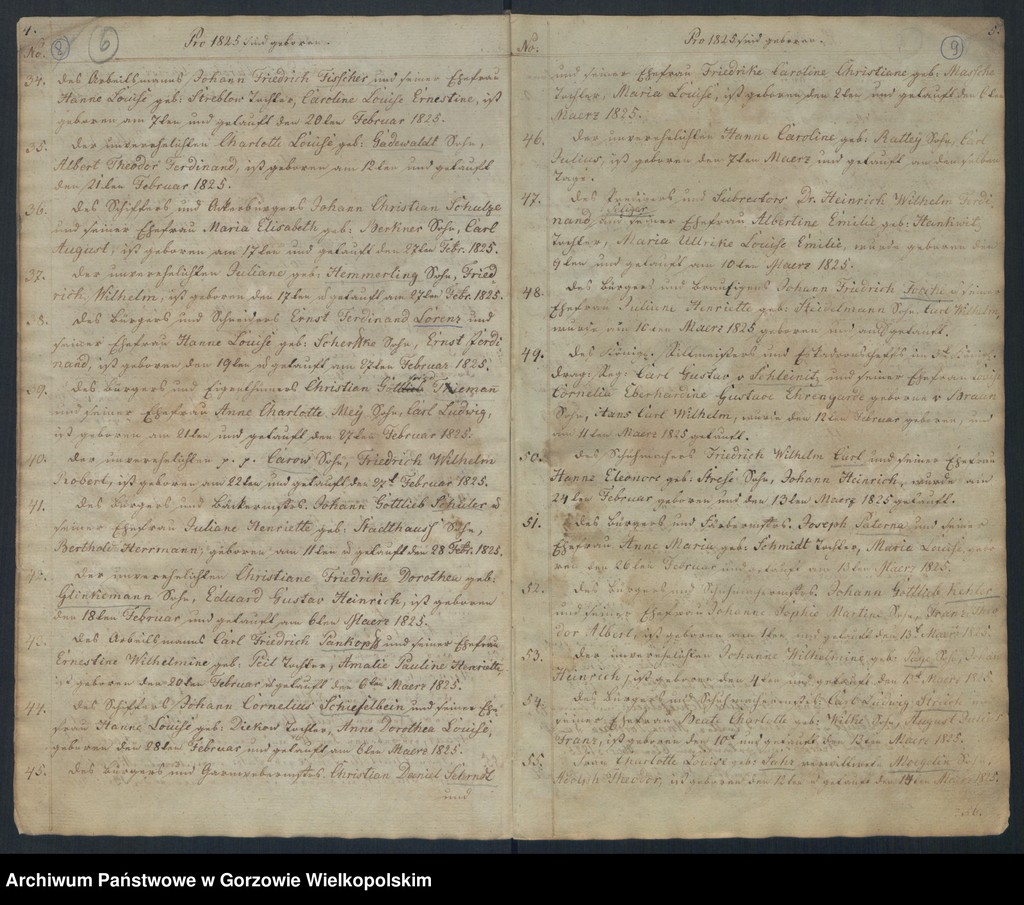 4.
No. 8 6 Pro 1825 sind geboren.
34. des Arbeitsmanns Johann Friedrich Fisscher und seiner Ehefrau
Hanne Louise geb: Streblow Tochter, Caroline Louise Ernestine, ist
geboren am 7ten und getauft den 20ten Februar 1825.
35. der unverehelichten Charlotte Louise geb: Gudewaldt Sohn,
Albert Theodor Ferdinand, ist geboren am 12ten und getauft
den 21ten Februar 1825.
36. des Schiffers und Ackerbürgers Johann Christian Schulze
und seiner Ehefrau Maria Elisabeth geb: Berkner Sohn, Carl
August, ist geboren am 17ten und getauft den 27ten Febr. 1825.
37. der unverehelichten Juliane geb: Hemmerling Sohn, Fried
rich Wilhelm, ist geboren den 17ten u getauft am 27ten Febr. 1825.
8. des Bürgers und Schneiders Ernst Ferdinand Lorenz und
seiner Ehefrau Hanne Louise geb: Sohn, Ernst Ferdi
nand, ist geboren den 19ten u getauft am 27ten Februar 1825.
39. des Bürgers und Eigenthümers Christian Gottlieb Thieman
und seiner Ehefrau Anne Charlotte Mey Sohn, Carl Ludwig,
ist geboren am 21ten und getauft den 27ten Februar 1825.
40. der unverehelichten p. p. Carow Sohn, Friedrich Wilhelm
Robert, ist geboren am 22ten und getauft den Februar 1825.
41. des Bürgers und Bäckermstrs. Johann Gottlieb Schuler u
seiner Ehefrau Juliane Henriette geb: Stadthaus Sohn,
Berthold Herrmann, geboren am 11ten u getauft den 28 Febr. 1825.
42. der unverehelichten Christiane Friedrike Dorothea geb:
Glinkiemann Sohn, Eduard Gustav Heinrich, ist geboren
den 18ten Februar und getauft am 6ten Maerz 1825.
43. des Arbeitsmanns Carl Friedrich Pankopff und seiner Ehefrau
Ernestine Wilhelmine geb: Peil Tochter, Amalie Pauline Henriette,
ist geboren den 20ten Februar u getauft den 6ten Maerz 1825.
44. des Schiffers Johann Cornelius Schiefelbein und seiner Ehe
frau Hanne Louise geb: Diekow Tochter, Anne Dorothea Louise,
geboren den 28ten Februar und getauft am 6ten Maerz 1825.
45. des Bürgers und Garnwebermstrs Christian Daniel
und
5.
No. Pro 1825 sind geboren. 9
und seiner Ehefrau Friedrike Caroline Christiane geb: Maschke
Tochter, Maria Louise, ist geboren den 2ten und getauft den 6ten
Maerz 1825.
46. der unverehelichten Hanne Caroline geb: Rattey Sohn, Carl
Julius, ist geboren den 7ten Maerz und getauft an demselben
Tage.
47. des Predigers und Subrectors Dr. Heinrich Wilhelm Ferdi
nand und seiner Ehefrau Albertine Emilie geb:
Tochter, Maria Ullrike Louise Emilie, wurde geboren den
9ten und getauft am 10ten Maerz 1825.
48. des Bürgers und Johann Friedrich u seiner
Ehefrau Juliane Henriette geb: Heidelmann Sohn, Carl Wilhelm,
wurde am 10ten Maerz 1825 geboren und auch getauft.
49. des Königl. Rittmeisters und Eskadronschefs im
drag: Reg: Carl Gustav v Schleinitz und seiner Ehefrau
Cornelia Eberhardine Gustave Ehrengarde geborne v Braun
Sohn, Hans Carl Wilhelm, wurde den 12ten Februar geboren, und
am 11ten Maerz 1825 getauft.
50. des Schuhmachers Friedrich Wilhelm Carl und seiner Ehefrau
Hanne Eleonore geb: Strese Sohn, Johann Heinrich, wurde am
24ten Februar geboren und den 13ten Maerz 1825 getauft.
51. des Bürgers und Färbermstrs. Joseph Paterna und seiner
Ehefrau Anne Maria geb: Schmidt Tochter, Marie Louise gebo
ren den 26ten Februar und getauft am 13ten Maerz 1825.
52. des Bürgers und Schuhmachermstrs. Johann Gottlieb
und seiner Ehefrau Johanne Sophie Martine Sohn, Franz Theo
dor Albert, ist geboren am 1ten und getauft den 13t Maerz 1825.
53. der unverehelichten Johanne Wilhelmine geb: Sohn,
Heinrich, ist geboren den 4ten und getauft den 13t Maerz 1825.
54. des Bürgers und Schuhmachermstrs. Carl Ludwig und
seiner Ehefrau Beate Charlotte geb: Wilke Sohn, August Julius
Franz, ist geboren den 10t und getauft den 13ten Maerz 1825.
55. Frau Charlotte Louise geb: verwittwete Moegelin Sohn,
Adolph Theodor, ist geboren den 12ten u getauft den Maerz 1825.
56.
Archiwum Państwowe w Gorzowie Wielkopolskim